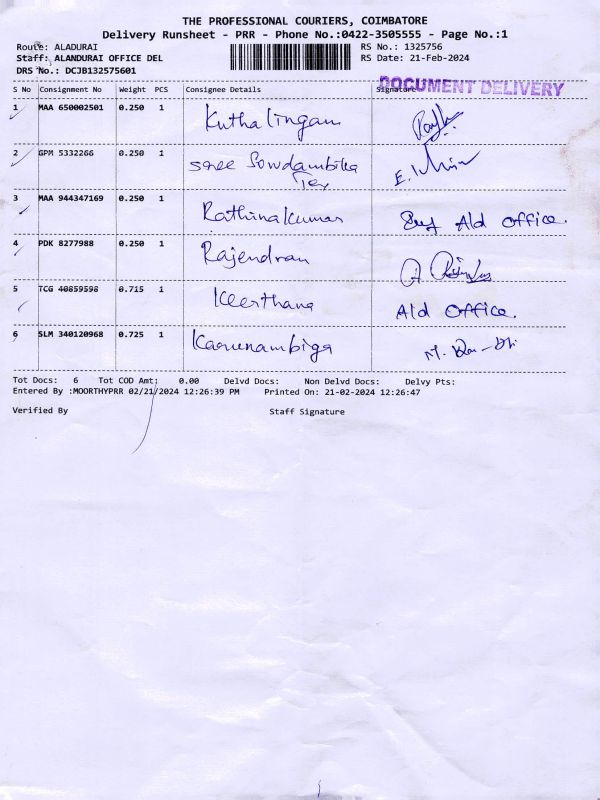 THE PROFESSIONAL COURIERS, COIMBATORE
Delivery Runsheet - PRR - Phone No.:0422-3505555 - Page No.:1
Route: ALADURAI RS No.: 1325756
Staff: ALANDURAI OFFICE DEL RS Date: 21-Feb-2024
DRS No.: DCJB132575601
DOCUMENT DELIVERY
S No Consignment No Weight PCS Consignee Details Signature
1 MAA 650002501 0.250 1 Kuthalingam
2 GPM 5332266 0.250 1 Sree Sowdambika Tex
3 MAA 944347169 0.250 1 Rathinakumar Ald office.
4 PDK 8277988 0.250 1 Rajendran
5 TCG 40859598 0.715 1 Keerthana Ald office.
6 SLM 340120968 0.725 1 Karunambiga
Tot Docs: 6 Tot COD Amt: 0.00 Delvd Docs: Non Delvd Docs: Delvy Pts:
Entered By :MOORTHYPRR 02/21/2024 12:26:39 PM Printed On: 21-02-2024 12:26:47
Verified By Staff Signature